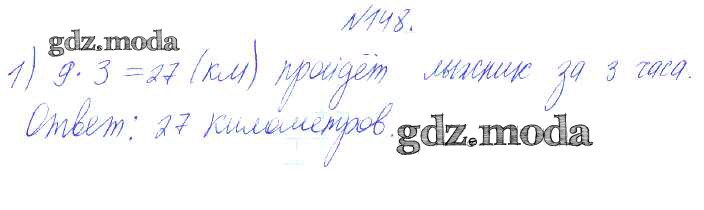 №148.
gdz.moda
1) 9·3=27 (км) пройдёт лыжник за 3 часа.
Ответ: 27 километров.
gdz.moda